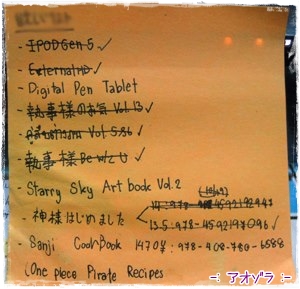 - IPOD Gen 5 ✓
- External HD ✓
- Digital Pen Tablet
- 執事様のお気 Vol.13 ✓
- Vol 586 ✓
- 執事様 Be with U ✓
- Starry Sky Art book Vol.2
(10/62)
14: 978-4592192947
- 神様はじめました
13.5: 978-4592197096 ✓
- Sanji CookBook 1470¥: 978-408-780-6588
(One piece Pirate Recipes
-=: アオゾラ :=-